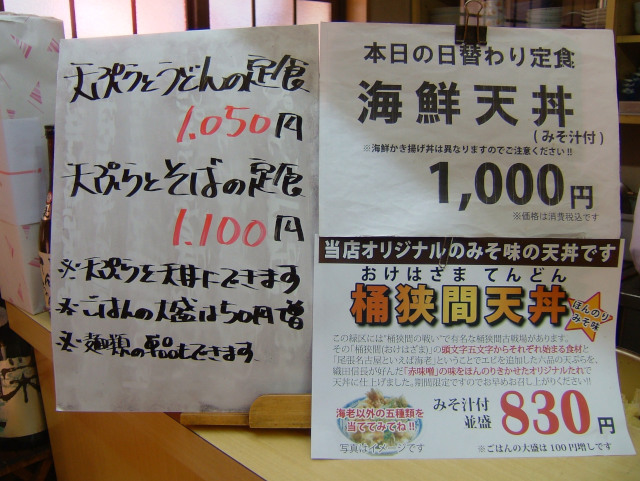 天ぷらとうどんの定食
1.050円
天ぷらとそばの定食
1.100円
※天ぷらと天丼にできます
※ごはんの大盛は50円増
※麺類の単品もできます
本日の日替わり定食
海鮮天丼
(みそ汁付)
※海鮮かき揚げ丼は異なりますのでご注意ください!!
1,000円
※価格は消費税込です
当店オリジナルのみそ味の天丼です
おけはざま てんどん
桶狭間天丼
ほんのりみそ味
この緑区には"桶狭間の戦い"で有名な桶狭間古戦場があります。
その「桶狭間(おけはざま)」の頭文字五文字からそれぞれ始まる食材と
「尾張名古屋といえば海老」ということでエビを追加した六品の天ぷらを、
織田信長が好んだ「赤味噌」の味をほんのりきかせたオリジナルたれで
天丼に仕上げました。期間限定ですのでお早めお召し上がりください!!
海老以外の五種類を
当ててみてね!!
写真はイメージです
みそ汁付
並盛 830円
※ごはんの大盛は100円増しです